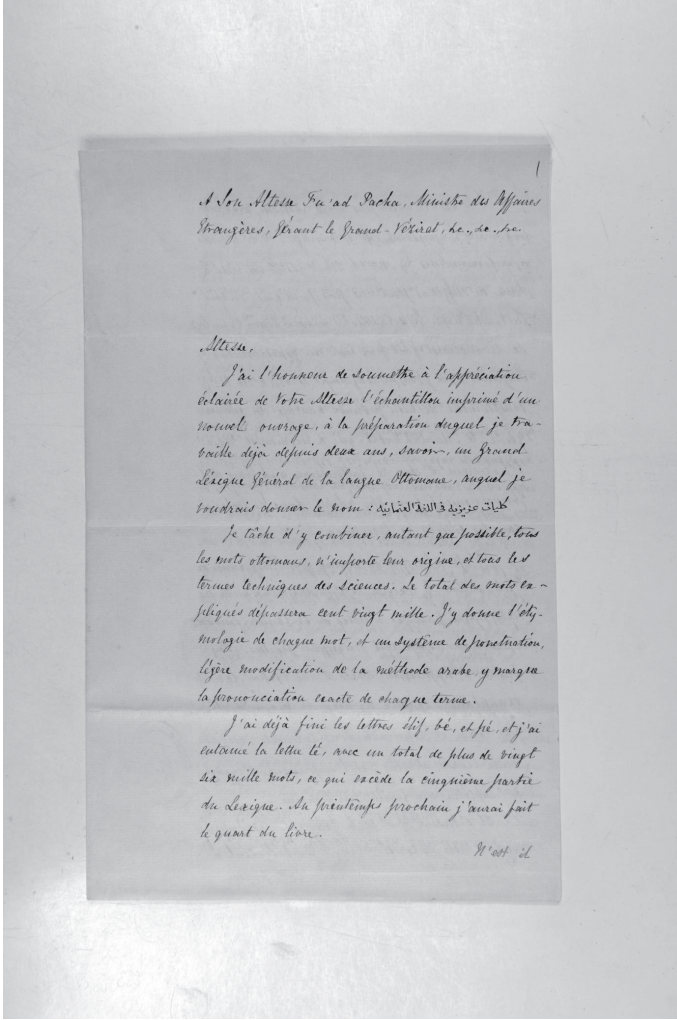 1
A Son Altesse Fu'ad Pacha, Ministre des Affaires
Etrangères, Gérant le Grand-Vézirat, &c., &c., &c.
Altesse,
J'ai l'honneur de soumettre à l'appréciation
éclairée de Votre Altesse l'échantillon imprimé d'un
nouvel ouvrage, à la préparation duquel je tra-
vaille déjà depuis deux ans, savoir, un Grand
Léxique Général de la langue Ottomane, auquel je
voudrais donner le nom: كليات عزيزيه فى اللغة العثمانيه
Je tâche d'y combiner, autant que possible, tous
les mots ottomans, n'importe leur origine, et tous les
termes techniques des sciences. Le total des mots ex-
pliqués dépassera cent vingt mille. J'y donne l'éty-
mologie de chaque mot, et un système de ponctuation,
légère modification de la méthode arabe, y marque
la prononciation exacte de chaque terme.
J'ai déjà fini les lettres élif, bé, et pé, et j'ai
entamé la lettre té, avec un total de plus de vingt
six mille mots, ce qui excède la cinquième partie
du Lexique. Au printemps prochain j'aurai fait
le quart du livre.
N'est il